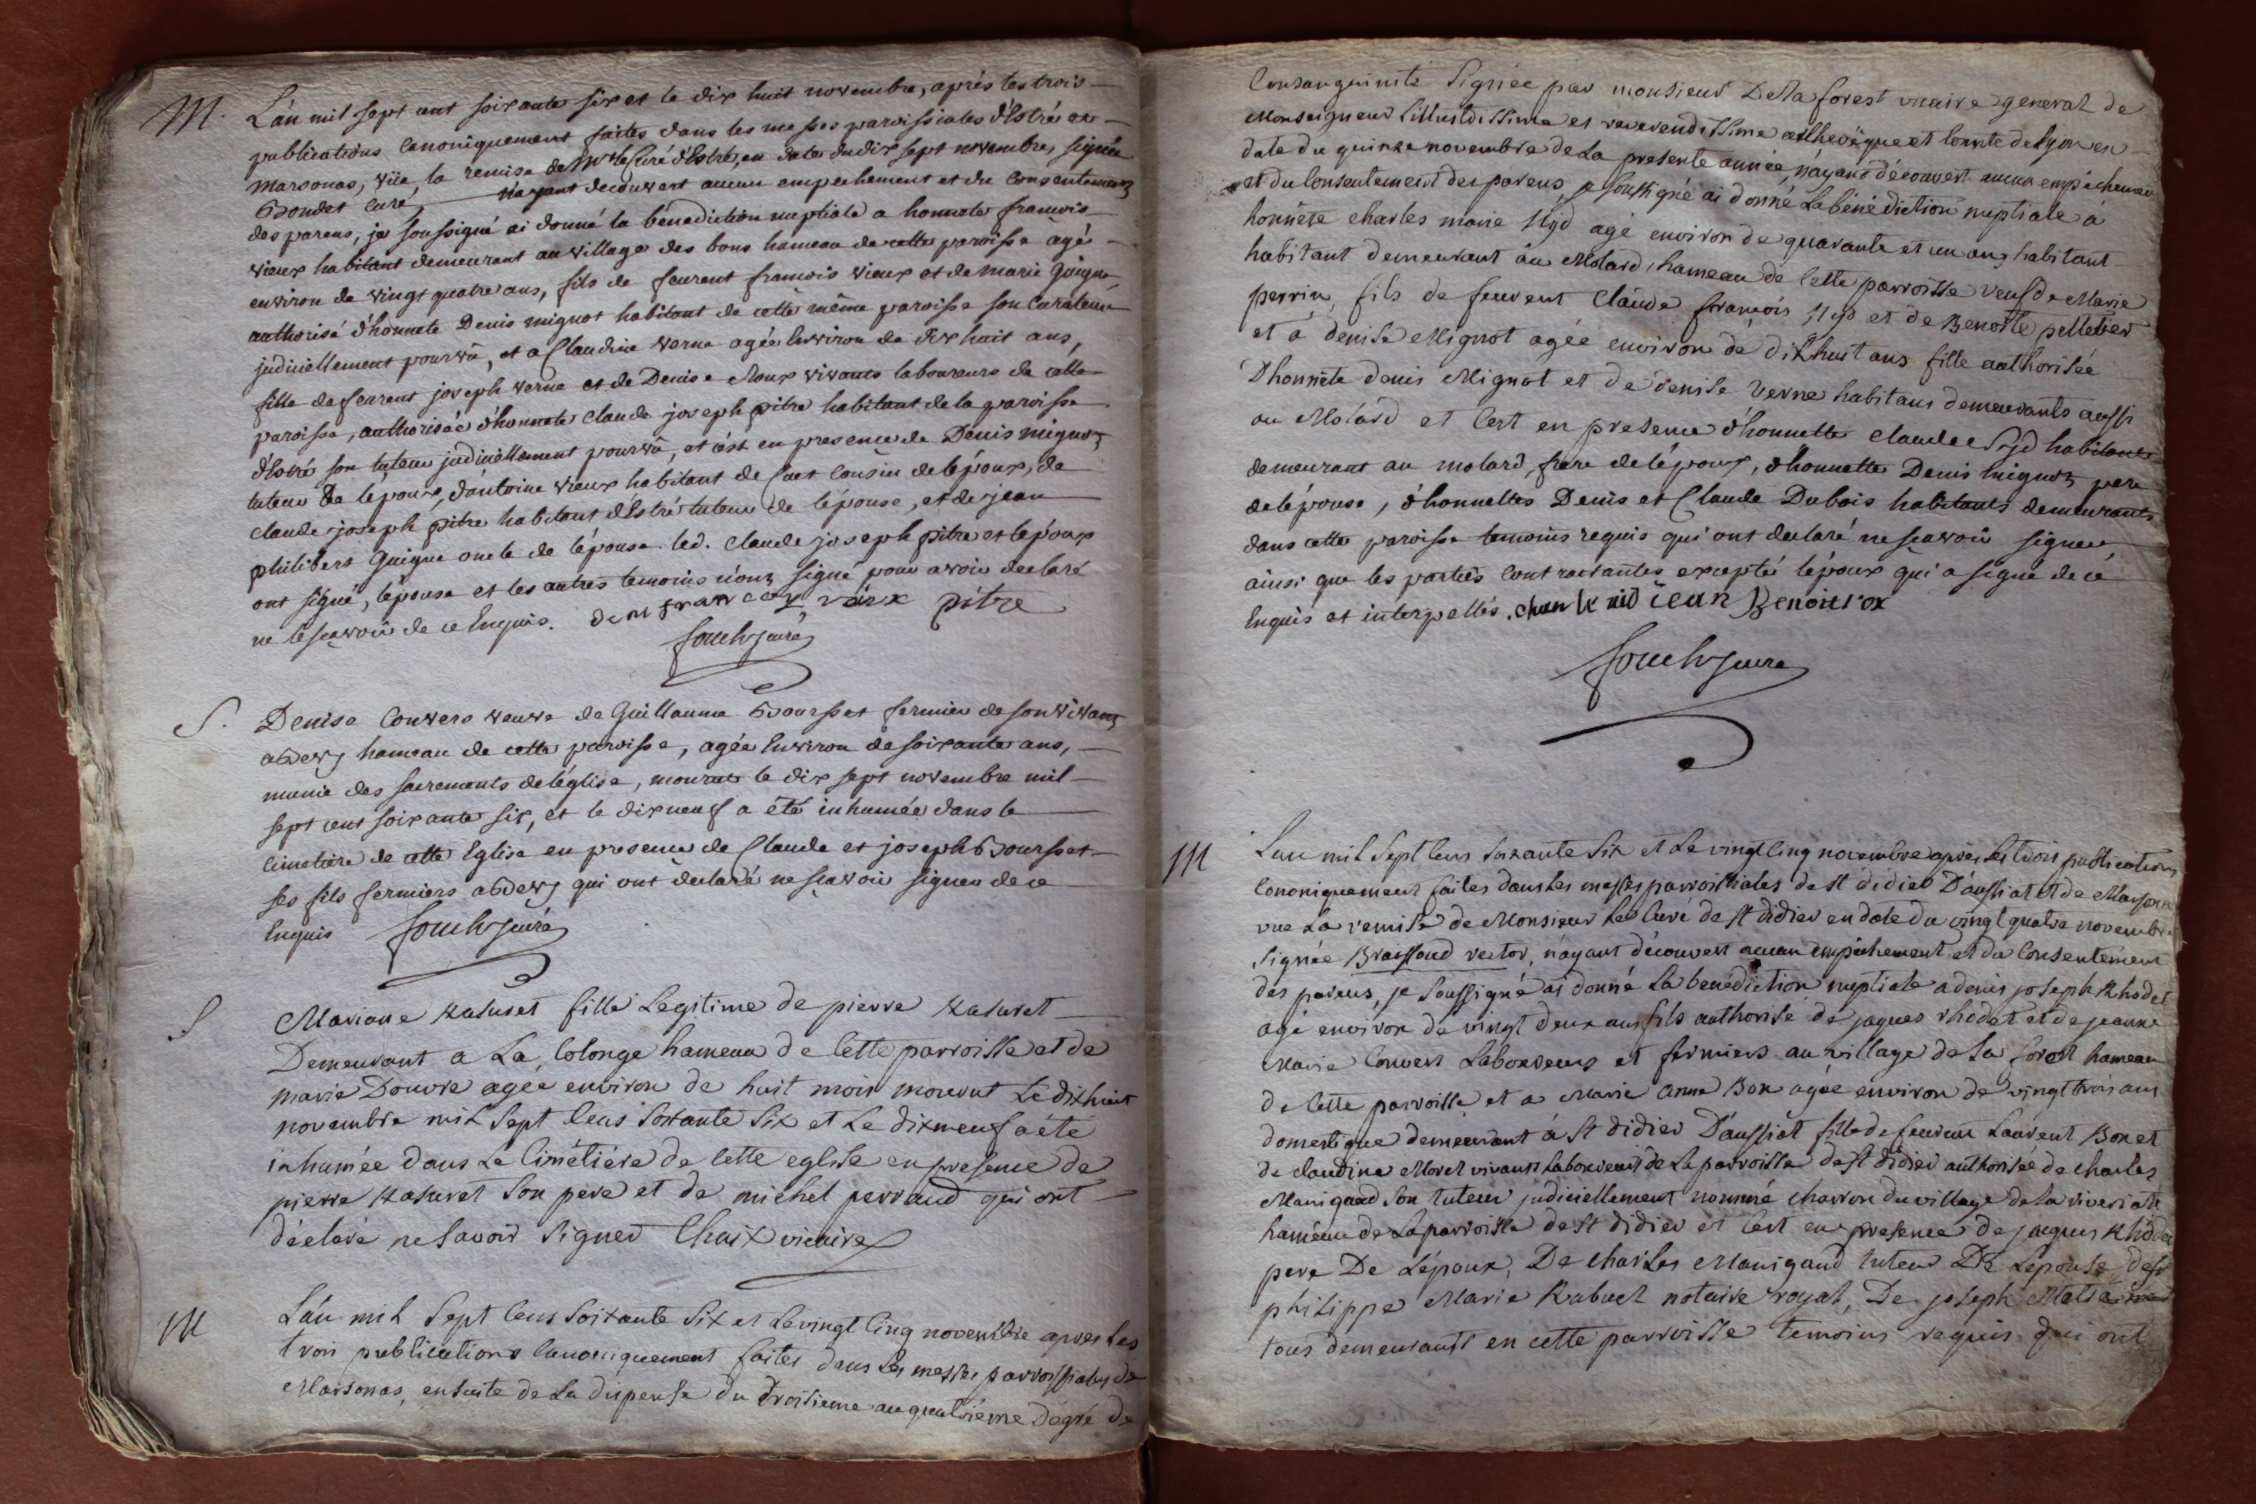 M. L'an mil sept cent soixante six et le dix huit novembre, après les trois
publications canoniquement faites dans les messes paroissiales d'Estré et
marsonas, vüe, la remise de Mr le Curé d'Estré, en date du dix sept novembre, signée
curé, n'ayant decouvert aucun empechement et du consentement
des parens, je soussigné ai donné la bénédiction nuptiale a honnete francois
vieux habitant demeurant au village des bons hameau de cette paroisse agé
environ de vingt quatre ans, fils de feurent francois vieux et de marie Guigue
authorisé d'honnete Denis mignot habitant de cette même paroisse son curateur
judiciellement pourvû, et a Claudine verne agée Environ de dix huit ans,
fille de feurent joseph verne et de Denise Roux vivants laboureurs de cette
paroisse, authorisée d'honnete claude joseph pitre habitant de la paroisse
d'Estré son tuteur judiciellement pourvû, et c'est en presence de Denis mignot
tuteur de l'époux, d'antoine vieux habitant de cuet cousin de l'époux, de
claude joseph pitre habitant d'Estré tuteur de l'épouse, et de jean
philibert Guigue oncle de l'épouse. led. claude joseph pitre et l'époux
ont signé, l'épouse et les autres temoins n'ont signé pour avoir declaré
ne le sçavoir de ce Enquis. francoy vieux pitre
fouch curé
S. Denise Convers veuve de Guillaume Boursset fermier de son vivant
hameau de cette paroisse, agée Environ de soixante ans,
munie des sacrements de l'église, mourut le dix sept novembre mil
sept cent soixante six, et le dix neuf a été inhumée dans le
cimetière de cette Eglise en presence de Claude et joseph Boursset
ses fils fermiers qui ont declaré ne sçavoir signer de ce
Enquis fouch curé
S Mariane Kasuret fille Legitime de pierre Kasuret
Demeurant a La Colonge hameau de Cette parroisse et de
marie Douvre agée environ de huit mois mourut Le dixhuit
novembre mil Sept Cens Soixante Six et Le dixneuf a été
inhumée dans Le Cimétiére de Cette eglise en presence de
pierre Kasuret Son pere et de michel perraud qui ont
déclaré ne Savoir Signer Chaix vicaire
M L'an mil Sept Cens Soixante Six et Le vingt Cinq novembre apres Les
trois publications Canoniquement faites dans Les messes parroissiales de
Marsonas, ensuite de La dispense du troisieme au quatriéme dégré de
Consanguinité Signée par monsieur Dela forest vicaire general de
Monseigneur L'illustrissime et reverendissime archevêque et Comte de Lyon en
date du quinze novembre de La presente année, n'ayant découvert aucun empéchement
et du Consentement des parens, je Soussigné ai donné La bénédiction nuptiale à
honnête charles marie Nyd agé environ de quarante et un ans habitant
habitant demeurant au Molard, hameau de Cette parroisse veuf de Marie
perrin, fils de feurent Claude francois Nyd et de Benoite pelletier
et à denise Mignot agée environ de dixhuit ans fille authorisée
D'honnête denis Mignot et de denise Verne habitans demeurants aussi
au Molard et C'est en presence d'honnette claude Nyd habitant
demeurant au molard, frere de l'époux, d'honnette Denis mignot pere
de l'épouse, d'honnettes Denis et Claude Dubois habitants demeurants
dans cette paroisse temoins requis qui ont declaré ne scavoir signer,
ainsi que les parties contractantes excepté l'époux qui a signé de ce
Enquis et interpellés. nid jean Benoit
fouch curé
M L'an mil Sept Cens Soixante Six et Le vingt Cinq novembre après Les trois publications
Canoniquement faites dans Les messes parroissiales de St didier D'aussiat et de Marsonas
vue La remise de Monsieur Le Curé de St didier en date du vingt quatre novembre
Signée Braissoud rector, n'ayant découvert aucun empéchement et du Consentement
des parens, je Soussigné ai donné La bénédiction nuptiale a denis joseph Rhodet
agé environ de vingt deux ans fils authorisé de jaques rhodet et de jeanne
Marie Convers Laboureurs et fermiers au village de La forest hameau
de Cette parroisse et a Marie anne Bon agée environ de vingt trois ans
domestique demeurant à St didier D'aussiat fille de feurent Laurent Bon et
de claudine Morel vivant Laboureurs de La parroisse de St didier authorisée de charles
Manigaud Son tuteur judiciellement nommé charron du village de La riveriat
hameau de La parroisse de St didier et C'est en presence de jaques Rhodet
pere De L'époux, De charles Manigaud tuteur De L'épouse, de Sr
philippe Marie Rabuel notaire royal, De joseph
tous demeurants en cette parroisse temoins requis qui ont